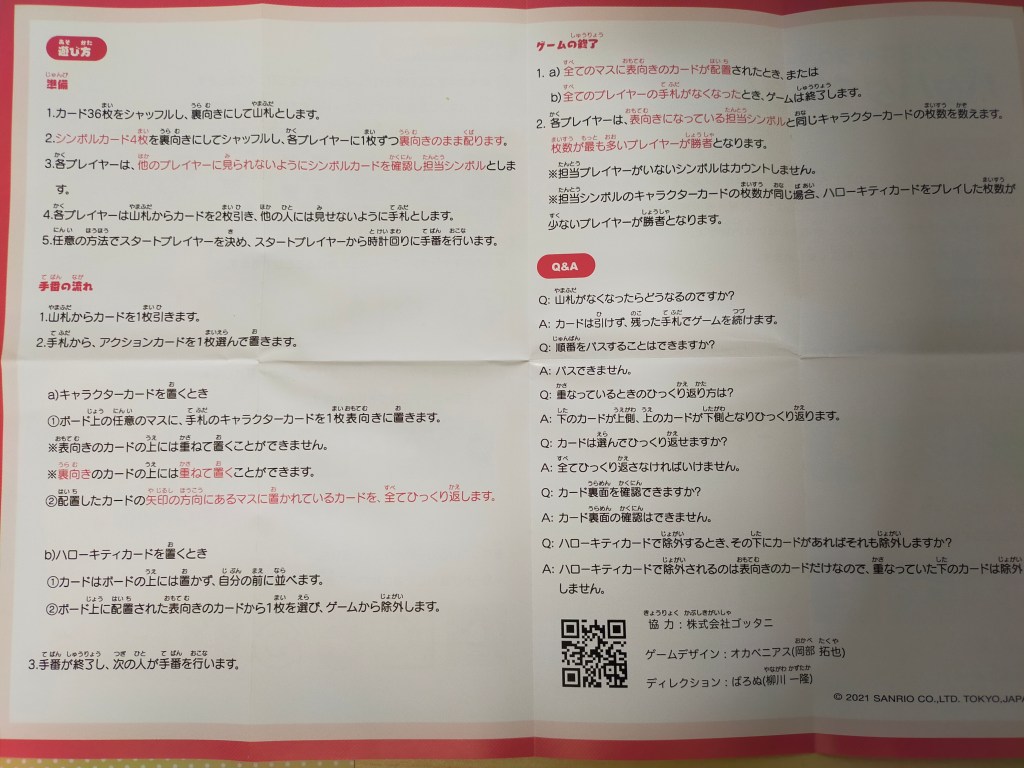 遊び方
準備
1.カード36枚をシャッフルし、裏向きにして山札とします。
2.シンボルカード4枚を裏向きにしてシャッフルし、各プレイヤーに1枚ずつ裏向きのまま配ります。
3.各プレイヤーは、他のプレイヤーに見られないようにシンボルカードを確認し担当シンボルとしま
す。
4.各プレイヤーは山札からカードを2枚引き、他の人には見せないように手札とします。
5.任意の方法でスタートプレイヤーを決め、スタートプレイヤーから時計回りに手番を行います。
手番の流れ
1.山札からカードを1枚引きます。
2.手札から、アクションカードを1枚選んで置きます。
a)キャラクターカードを置くとき
①ボード上の任意のマスに、手札のキャラクターカードを1枚表向きに置きます。
※表向きのカードの上には重ねて置くことができません。
※裏向きのカードの上には重ねて置くことができます。
②配置したカードの矢印の方向にあるマスに置かれているカードを、全てひっくり返します。
b)ハローキティカードを置くとき
①カードはボードの上には置かず、自分の前に並べます。
②ボード上に配置された表向きのカードから1枚を選び、ゲームから除外します。
3.手番が終了し、次の人が手番を行います。
ゲームの終了
1. a) 全てのマスに表向きのカードが配置されたとき、または
b)全てのプレイヤーの手札がなくなったとき、ゲームは終了します。
2. 各プレイヤーは、表向きになっている担当シンボルと同じキャラクターカードの枚数を数えます。
枚数が最も多いプレイヤーが勝者となります。
※担当プレイヤーがいないシンボルはカウントしません。
※担当シンボルのキャラクターカードの枚数が同じ場合、ハローキティカードをプレイした枚数が
少ないプレイヤーが勝者となります。
Q&A
Q: 山札がなくなったらどうなるのですか?
A: カードは引けず、残った手札でゲームを続けます。
Q: 順番をパスすることはできますか?
A: パスできません。
Q: 重なっているときのひっくり返り方は?
A: 下のカードが上側、上のカードが下側となりひっくり返ります。
Q: カードは選んでひっくり返せますか?
A: 全てひっくり返さなければいけません。
Q: カード裏面を確認できますか?
A: カード裏面の確認はできません。
Q: ハローキティカードで除外するとき、その下にカードがあればそれも除外しますか?
A: ハローキティカードで除外されるのは表向きのカードだけなので、重なっていた下のカードは除外
しません。
協力:株式会社ゴッタニ
ゲームデザイン:オカベニアス(岡部 拓也)
ディレクション:ぱろぬ(柳川 一隆)
© 2021 SANRIO CO.,LTD. TOKYO,JAPA